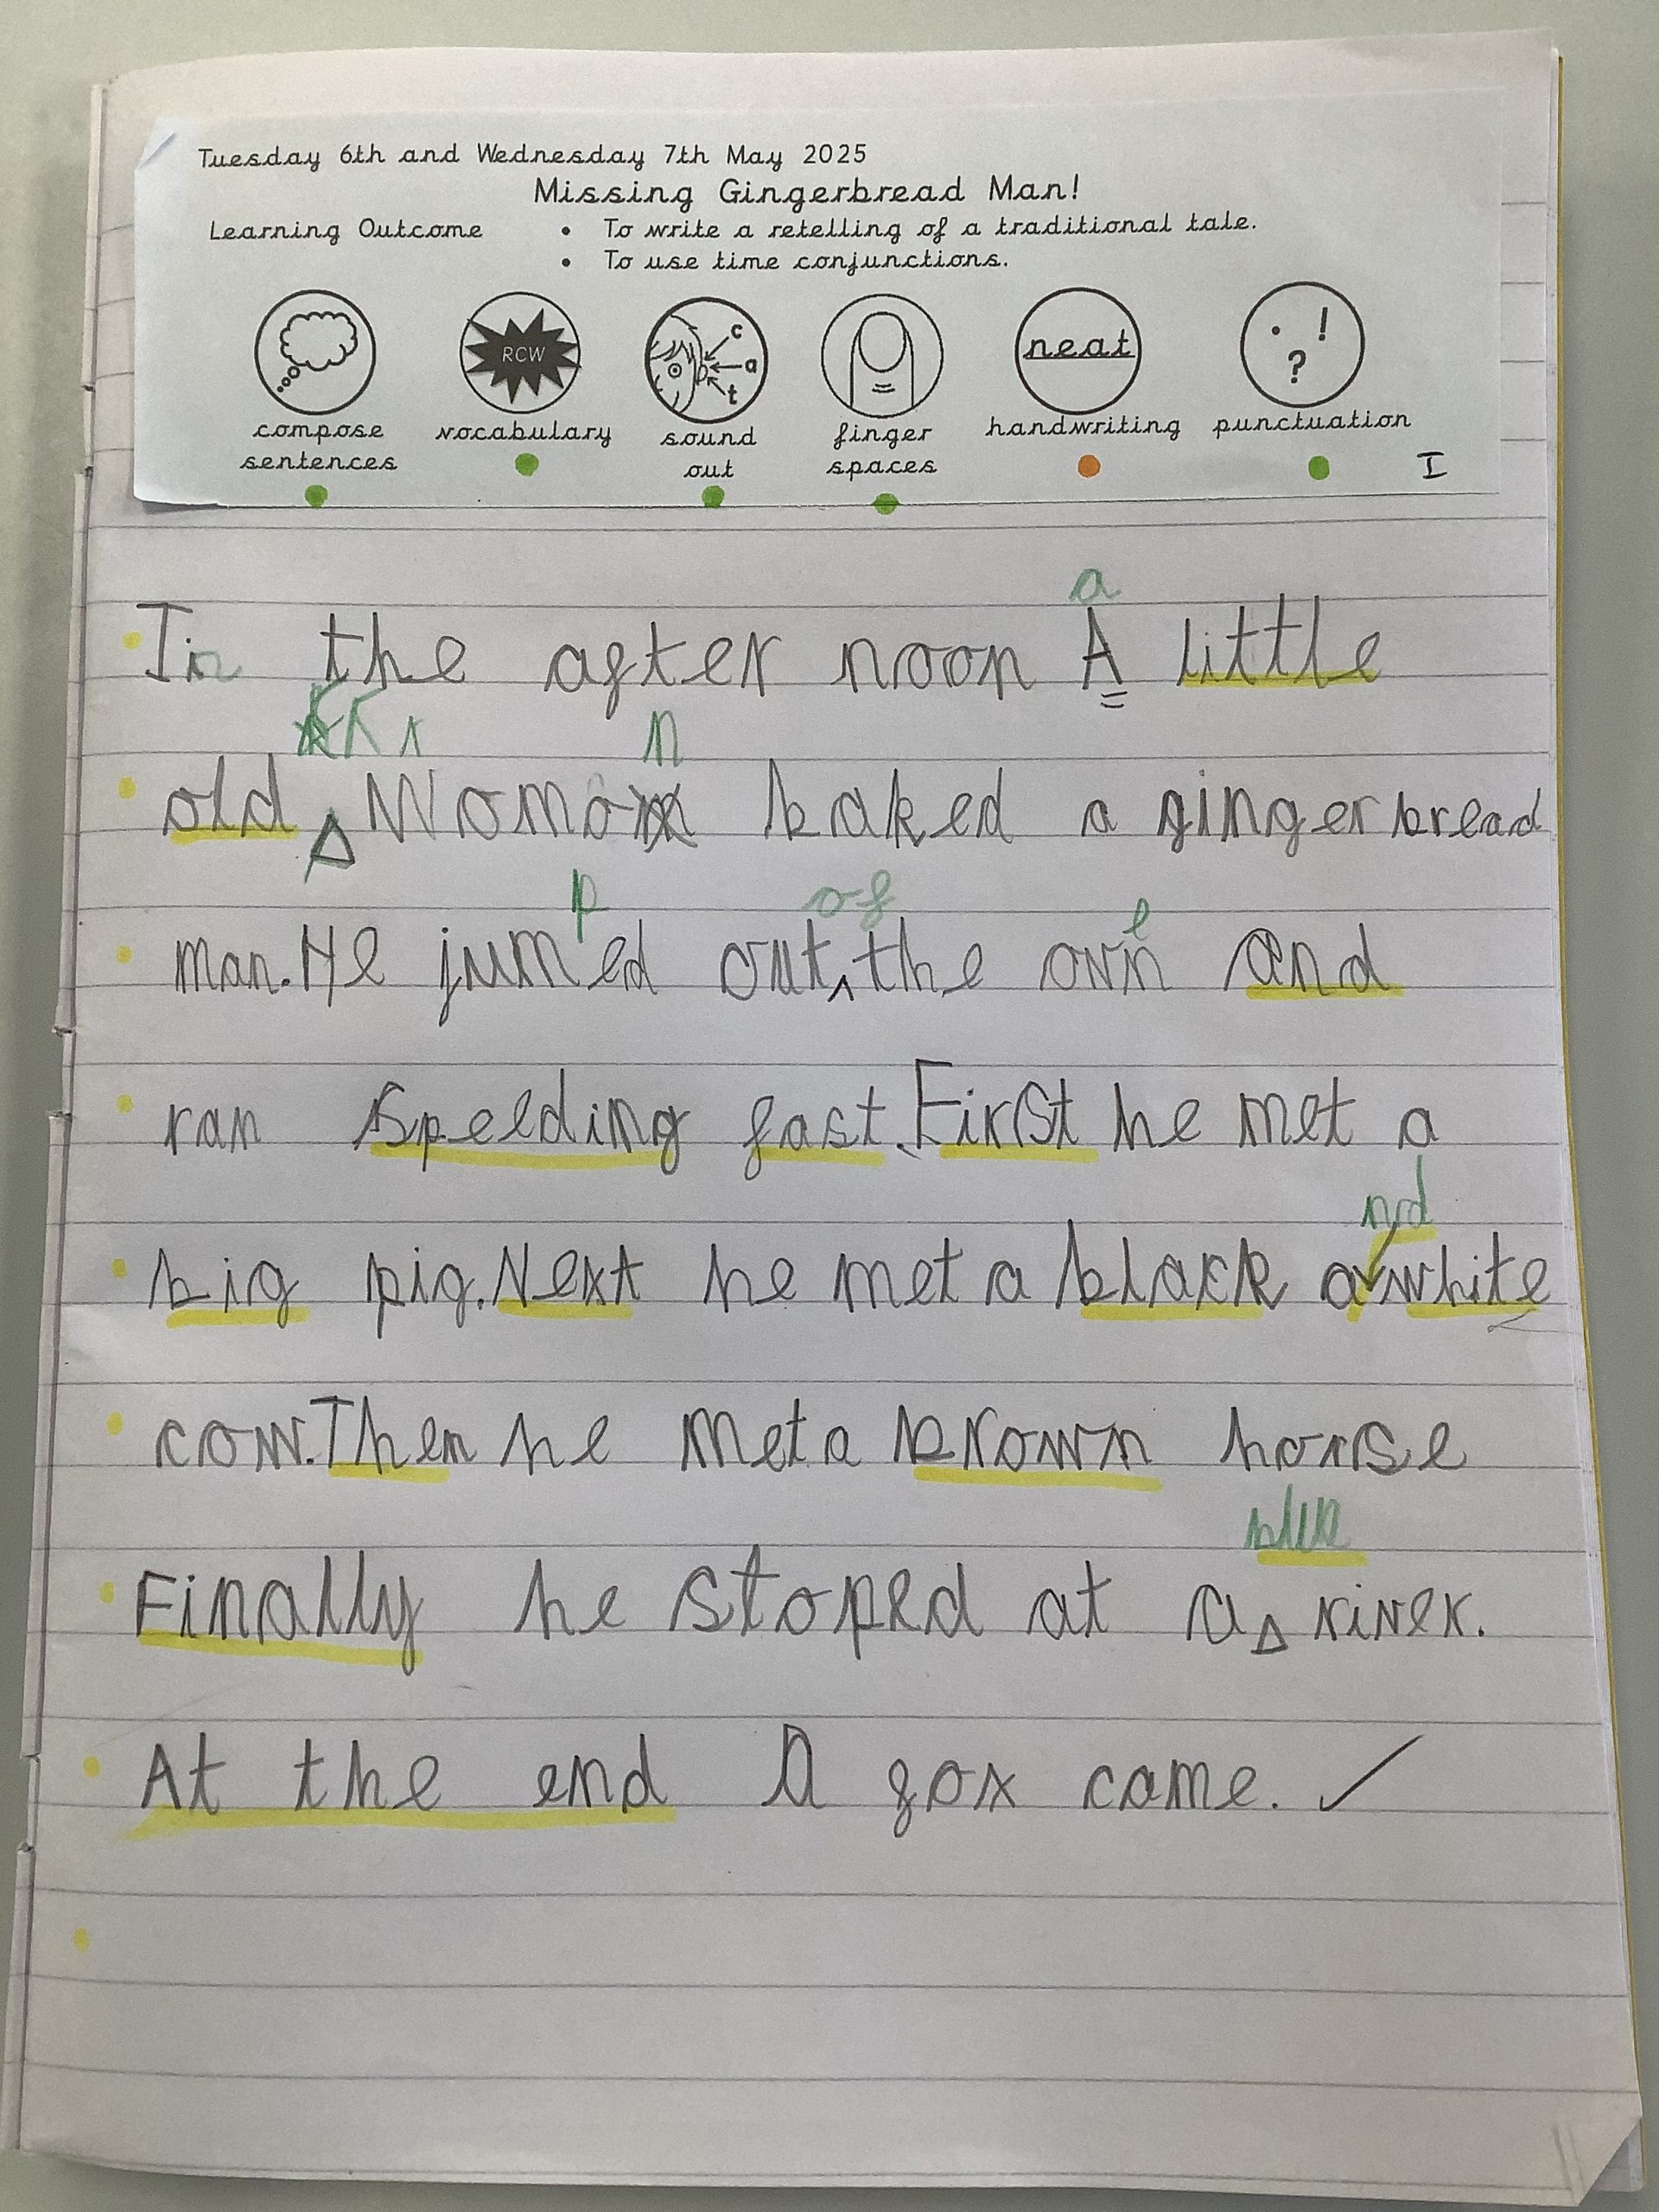 Tuesday 6th and Wednesday 7th May 2025
Missing Gingerbread Man!
Learning Outcome • To write a retelling of a traditional tale.
• To use time conjunctions.
RCW
c
a
t
neat
. ! ?
compose sentences
vocabulary
sound out
finger spaces
handwriting
punctuation
I
a
In the after noon A little
n
old Woman baked a gingerbread
p of e
man. He jumed out the ovn and
ran speeding fast. First he met a
nd
big pig. Next he met a black a white
cow. Then he met a brown horse
blue
Finally he stoped at a river.
At the end A fox came.